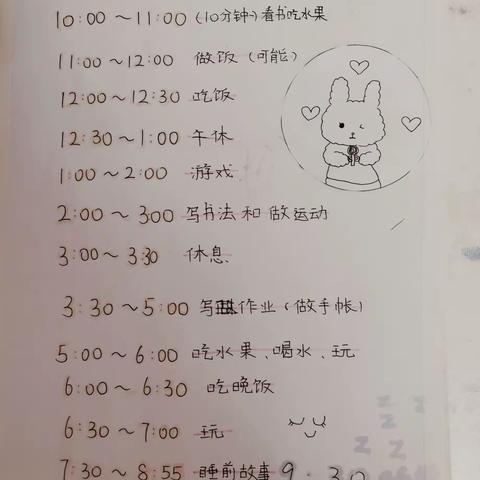 10:00～11:00 (10分钟)看书吃水果
11:00～12:00 做饭(可能)
12:00～12:30 吃饭
12:30～1:00 午休
1:00～2:00 游戏
2:00～300 写书法和做运动
3:00～3:30 休息
3:30～5:00 写作业(做手帐)
5:00～6:00 吃水果、喝水、玩
6:00～6:30 吃晚饭
6:30～7:00 玩
7:30～8:55 睡前故事 9:30
z z z z